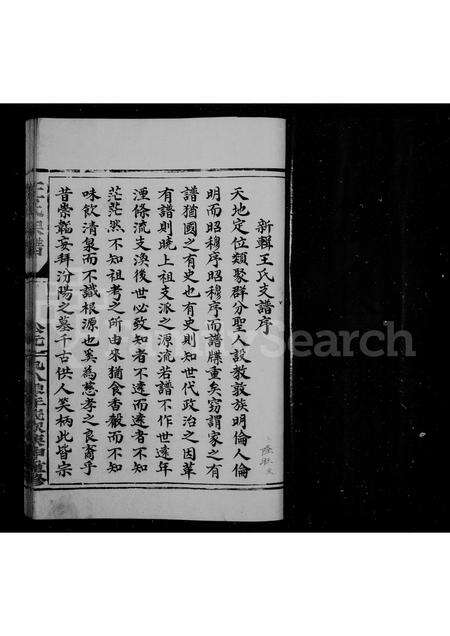 新輯王氏支譜序
天地定位類聚群分聖人設教敦族明倫人倫
明而昭穆序昭穆序而譜牒重矣竊謂家之有
譜猶國之有史也有史則知世代政治之因革
有譜則曉上祖支派之源流若譜不作世遠年
湮條流支渙後世必致知者不遠而遠者不知
茫茫然不知祖考之所由來猶食香穀而不知
味飲清泉而不識根源也奚為慈孝之良裔乎
昔崇韜妄拜汾陽之墓千古供人笑柄此皆宗
Search